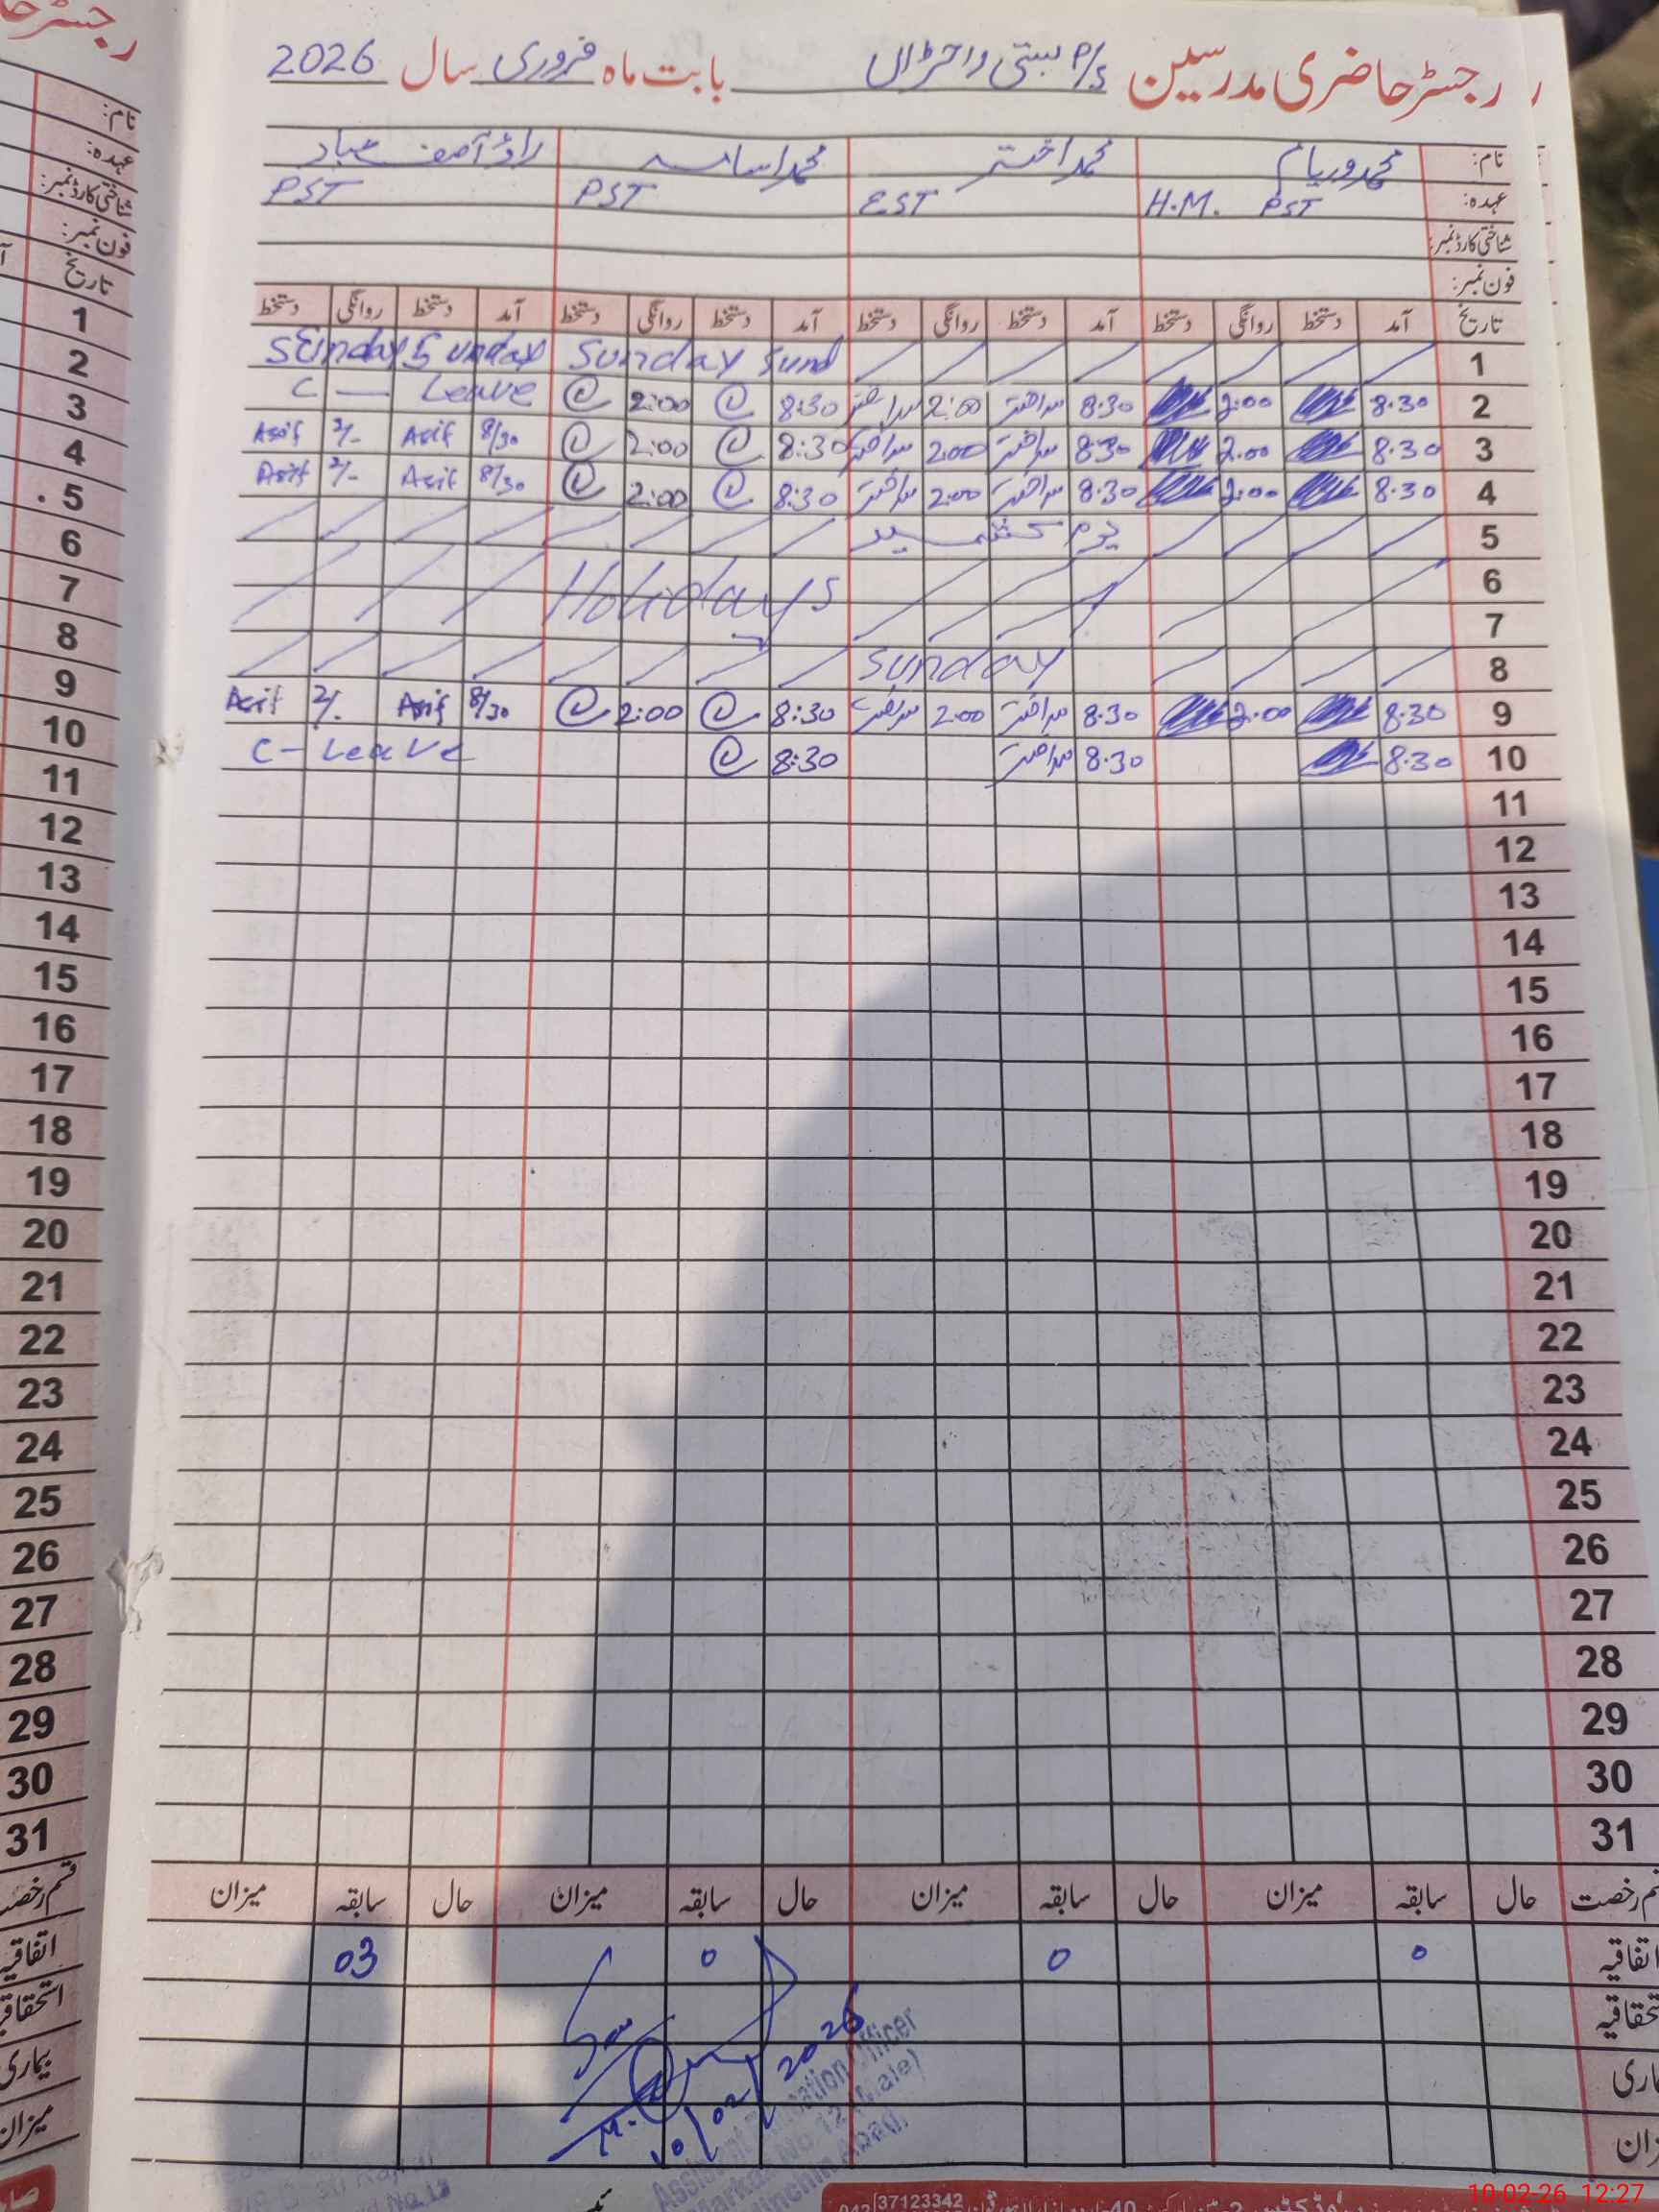 رجسٹر حاضری مدرسین P/S بستی واحڑاں بابت ماہ فروری سال 2026
نام: محمد وریام محمد اختر محمد اسامہ راؤ آصف عباد
عہدہ: H.M. PST EST PST PST
شناختی کارڈ نمبر:
فون نمبر:
تاریخ آمد دستخط روانگی دستخط آمد دستخط روانگی دستخط آمد دستخط روانگی دستخط آمد دستخط روانگی دستخط
1 Sunday Sunday Sunday Sund
2 8.30 2:00 8.30 2:00 8:30 2:00 C — Leave
3 8.30 2.00 8:30 2:00 8:30 2:00 8/30 Asif 2/- Asif
4 8.30 2:00 8.30 2:00 8:30 2:00 8/30 Asif 2/- Asif
5 یوم کشمیر
6 Holidays
7
8 Sunday
9 8.30 2:00 8.30 2:00 8:30 2:00 8/30 Asif 2/. Asif
10 8.30 8.30 8:30 C - Leave
11
12
13
14
15
16
17
18
19
20
21
22
23
24
25
26
27
28
29
30
31
حال سابقہ میزان حال سابقہ میزان حال سابقہ میزان حال سابقہ میزان
اتفاقیہ 0 0 0 03
10/02/2026
Assistant Education Officer
Markaz No. 12 (Male)
37123342
10-02-26 12:27
نام:
عہدہ:
شناختی کارڈ نمبر:
فون نمبر:
تاریخ
1
2
3
4
5
6
7
8
9
10
11
12
13
14
15
16
17
18
19
20
21
22
23
24
25
26
27
28
29
30
31
اتفاقیہ
بیماری
میزان